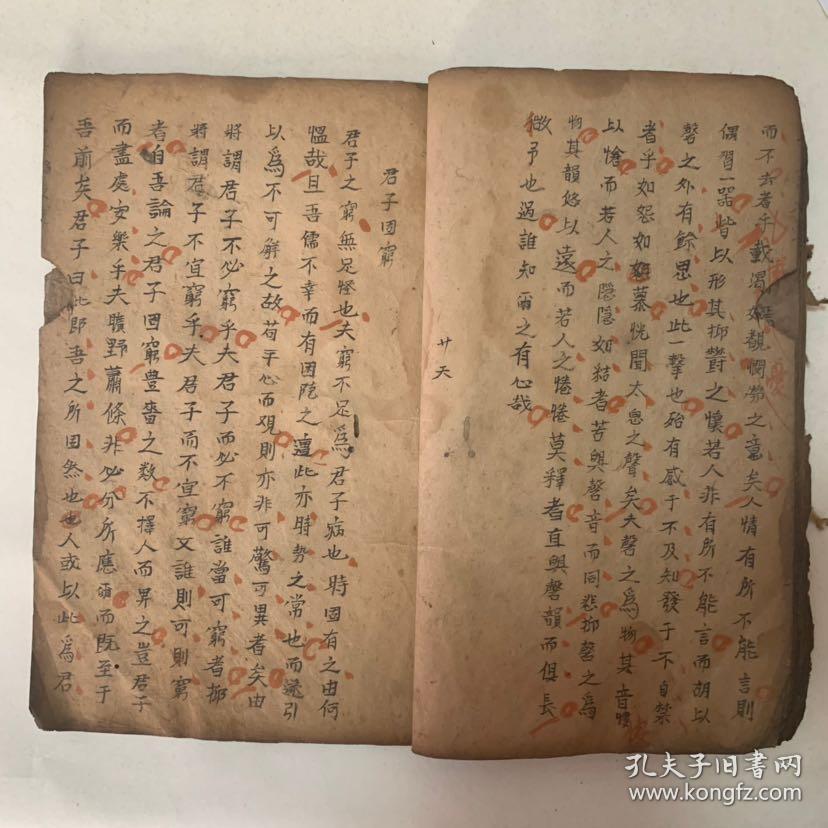 而不去者乎載渴如觀憫勞之意矣人情有所不能言則
偶習一器皆以形其抑鬱之懷若人非有所不能言而胡以
磬之外有餘思也此一擊也殆有感于不及知發于不自禁
者乎如怨如慕恍聞太息之聲矣夫磬之爲物其音
以愴而若人之隱隱如結者苦與磬音而同悲抑磬之爲
物其韻悠以遠而若人之惓惓莫釋者直與磬韻而俱長
微乎也過誰知而之有心哉
廿天
君子固窮
君子之窮無足怪也夫窮不足爲君子病也時固有之由何
慍哉且吾儒不幸而有困阨之遭此亦時勢之常也而遂引
以爲不可解之故苟平心而观則亦非可驚可異者矣由
將謂君子不必窮乎夫君子而必不窮誰當可窮者抑
將謂君子不宜窮乎夫君子而不宜窮又誰則可則窮
者自吾論之君子固窮豊嗇之数不擇人而畀之豈君子
而盡處安樂乎夫曠野蕭條非必分所應爾而既至于
吾前矣君子曰此即吾之所固然也也人或以此爲君
孔夫子旧書网
www.kongfz.com